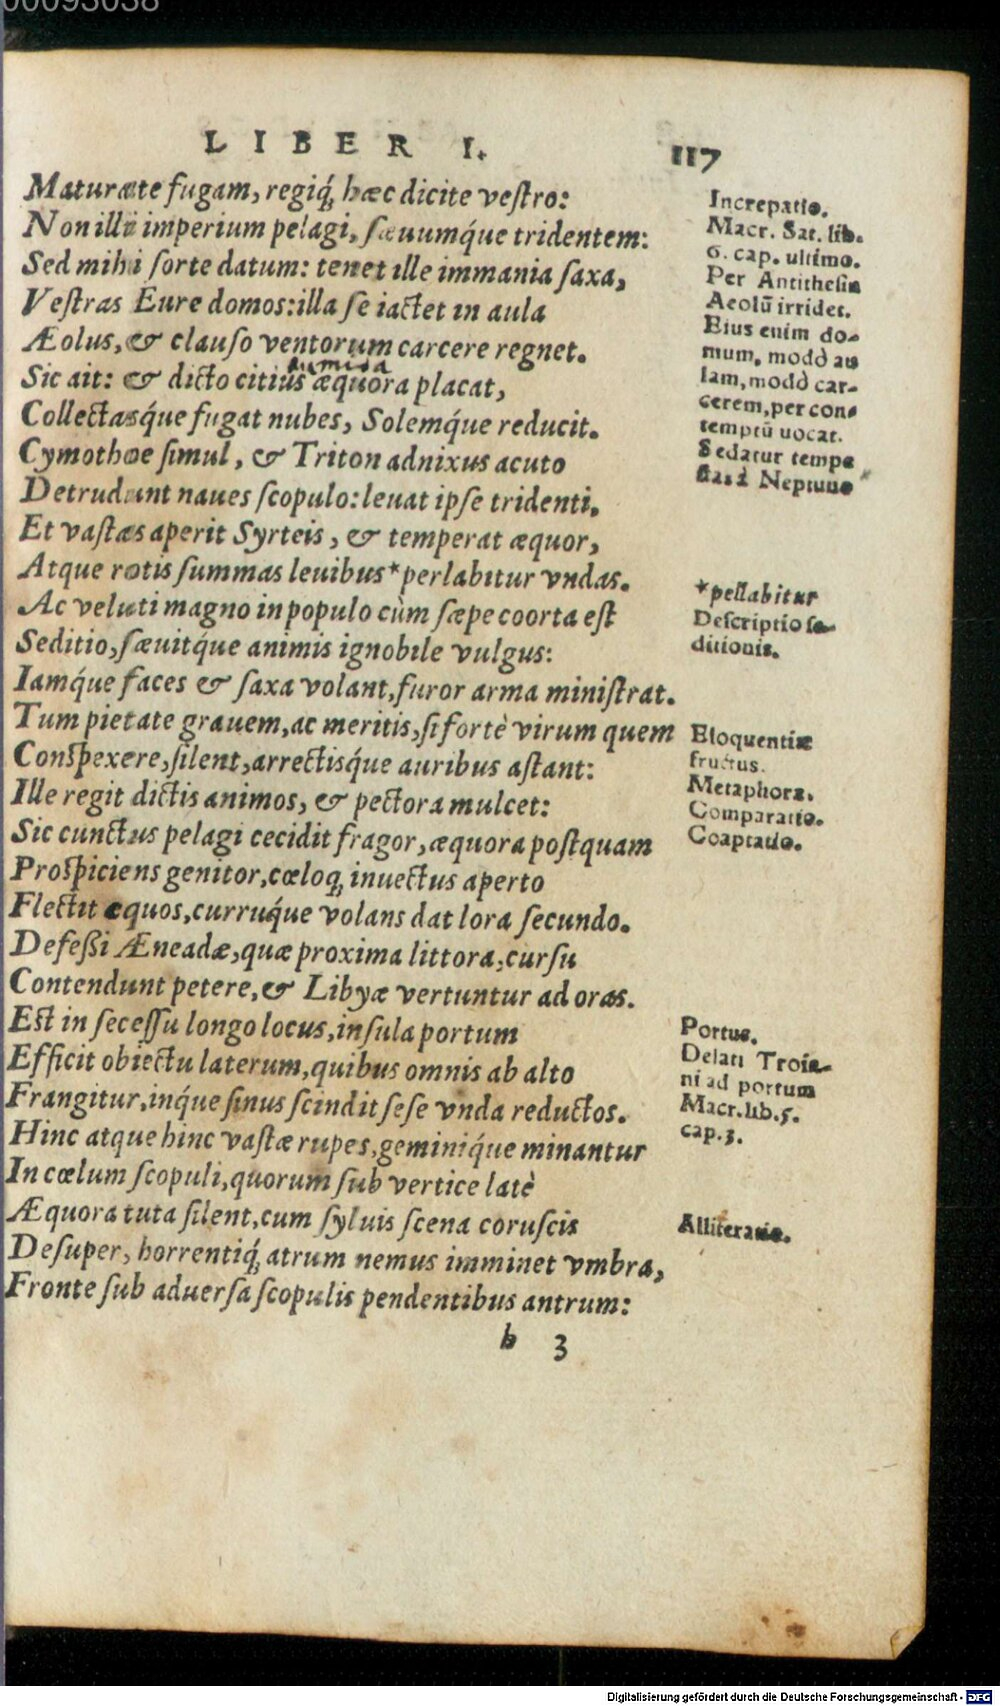 00093038
LIBER I. 117
Maturate fugam, regiq́; hæc dicite vestro:
Non illi imperium pelagi, sæuumq́ue tridentem:
Sed mihi sorte datum: tenet ille immania saxa,
Vestras Eure domos: illa se iactet in aula
Æolus, & clauso ventorum carcere regnet.
tumida
Sic ait: & dicto citius æquora placat,
Collectasq́ue fugat nubes, Solemq́ue reducit.
Cymothoe simul, & Triton adnixus acuto
Detrudunt naues scopulo: leuat ipse tridenti,
Et vastas aperit Syrteis, & temperat æquor,
Atque rotis summas leuibus *perlabitur vndas.
Ac veluti magno in populo cùm sæpe coorta est
Seditio, sæuitq́ue animis ignobile vulgus:
Iamq́ue faces & saxa volant, furor arma ministrat.
Tum pietate grauem, ac meritis, si fortè virum quem
Conspexere, silent, arrectisq́ue auribus astant:
Ille regit dictis animos, & pectora mulcet:
Sic cunctus pelagi cecidit fragor, æquora postquam
Prospiciens genitor, cœloq́; inuectus aperto
Flectit equos, curruq́ue volans dat lora secundo.
Defessi Æneadæ, quæ proxima littora, cursu
Contendunt petere, & Libyæ vertuntur ad oras.
Est in secessu longo locus, insula portum
Efficit obiectu laterum, quibus omnis ab alto
Frangitur, inq́ue sinus scindit sese vnda reductos.
Hinc atque hinc vastæ rupes, geminiq́ue minantur
In cœlum scopuli, quorum sub vertice latè
Æquora tuta silent, cum syluis scena coruscis
Desuper, horrentiq́; atrum nemus imminet vmbra,
Fronte sub aduersa scopulis pendentibus antrum:
b 3
Increpatio.
Macr. Sat. lib.
6. cap. ultimo.
Per Antithesin
Aeolū irridet.
Eius enim do-
mum, modò au
lam, modò car-
cerem, per con-
temptū uocat.
Sedatur tempe
stas à Neptuno
*pellabitur
Descriptio se-
ditionis.
Eloquentiæ
fructus.
Metaphora.
Comparatio.
Coaptatio.
Portus.
Delati Troia-
ni ad portum
Macr. lib. 5.
cap. 3.
Alliteratio.
Digitalisierung gefördert durch die Deutsche Forschungsgemeinschaft - DFG